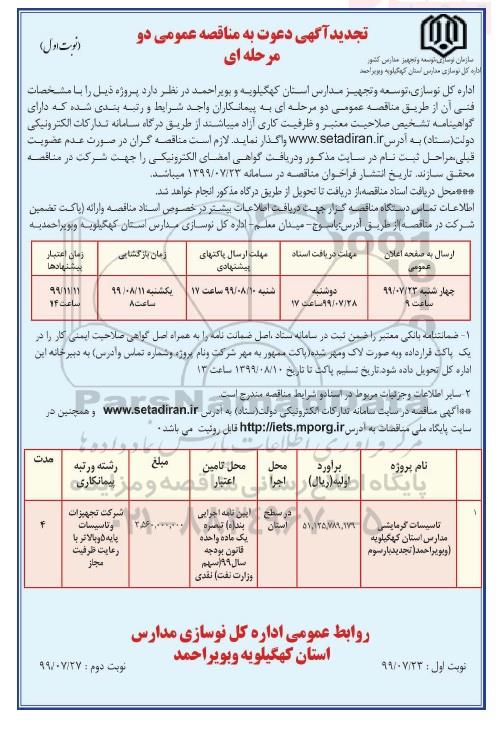 تجدیدآگهی دعوت به مناقصه عمومی دو
مرحله ای
(نوبت اول)
سازمان نوسازی،توسعه وتجهیز مدارس کشور
اداره کل نوسازی مدارس استان کهگیلویه وبویراحمد
اداره کل نوسازی،توسعه وتجهیز مدارس استان کهگیلویه و بویراحمد در نظر دارد پروژه ذیل را با مشخصات
فنی آن از طریق مناقصه عمومی دو مرحله ای به پیمانکاران واجد شرایط و رتبه بندی شده که دارای
گواهینامه تشخیص صلاحیت معتبر و ظرفیت کاری آزاد میباشند از طریق درگاه سامانه تدارکات الکترونیکی
دولت(ستاد) به آدرس www.setadiran.ir واگذار نماید. لازم است مناقصه گران در صورت عدم عضویت
قبلی،مراحل ثبت نام در سایت مذکور ودریافت گواهی امضای الکترونیکی را جهت شرکت در مناقصه
محقق سازند. تاریخ انتشار فراخوان مناقصه در سامانه ۱۳۹۹/۰۷/۲۳ میباشد.
***محل دریافت اسناد مناقصه،از دریافت تا تحویل از طریق درگاه مذکور انجام خواهد شد.
اطلاعات تماس دستگاه مناقصه گزار جهت دریافت اطلاعات بیشتر در خصوص اسناد مناقصه وارائه (پاکت تضمین
شرکت در مناقصه)از طریق آدرس:یاسوج- میدان معلم- اداره کل نوسازی مدارس استان کهگیلویه وبویراحمدبه
ارسال به صفحه اعلان عمومی | مهلت دریافت اسناد | مهلت ارسال پاکتهای پیشنهادی | زمان بازگشایی | زمان اعتبار پیشنهادها
چهار شنبه ۹۹/۰۷/۲۳ ساعت ۹ | دوشنبه ۹۹/۰۷/۲۸ساعت ۱۷ | شنبه ۹۹/۰۸/۱۰ ساعت ۱۷ | یکشنبه ۹۹/۰۸/۱۱ ساعت۸ | ۹۹/۱۱/۱۱ ساعت ۱۴
۱- ضمانتنامه بانکی معتبر را ضمن ثبت در سامانه ستاد ،اصل ضمانت نامه را به همراه اصل گواهی صلاحیت ایمنی کار را در
یک پاکت قرارداده وبه صورت لاک ومهر شده(پاکت ممهور به مهر شرکت ونام پروژه وشماره تماس وآدرس) به دبیرخانه این
اداره کل تحویل داده شود.تاریخ تسلیم پاکت تا تاریخ ۱۳۹۹/۰۸/۱۰ ساعت ۱۳
۲-سایر اطلاعات وجزئیات مربوط در اسنادو شرایط مناقصه مندرج است.
**آگهی مناقصه در سایت سامانه تدارکات الکترونیکی دولت(ستاد) به آدرس www.setadiran.ir و همچنین در
سایت پایگاه ملی مناقصات به آدرس http://iets.mporg.ir قابل رویت می باشد.
نام پروژه | برآورد اولیه(ریال) | محل اجرا | محل تامین اعتبار | مبلغ | رشته ورتبه پیمانکاری | مدت
۱ | تاسیسات گرمایشی مدارس استان کهگیلویه وبویراحمد(تجدیدبارسوم) | ۵۱,۱۲۵,۷۸۹,۱۷۹ | در سطح استان | آیین نامه اجرایی بند(ه) تبصره یک ماده واحده قانون بودجه سال۹۹(سهم وزارت نفت) نقدی | ۲,۵۶۰,۰۰۰,۰۰۰ | شرکت تجهیزات وتاسیسات پایه۵وبالاتر با رعایت ظرفیت مجاز | ۴
روابط عمومی اداره کل نوسازی مدارس
استان کهگیلویه وبویراحمد
نوبت اول : ۹۹/۰۷/۲۳
نوبت دوم : ۹۹/۰۷/۲۷